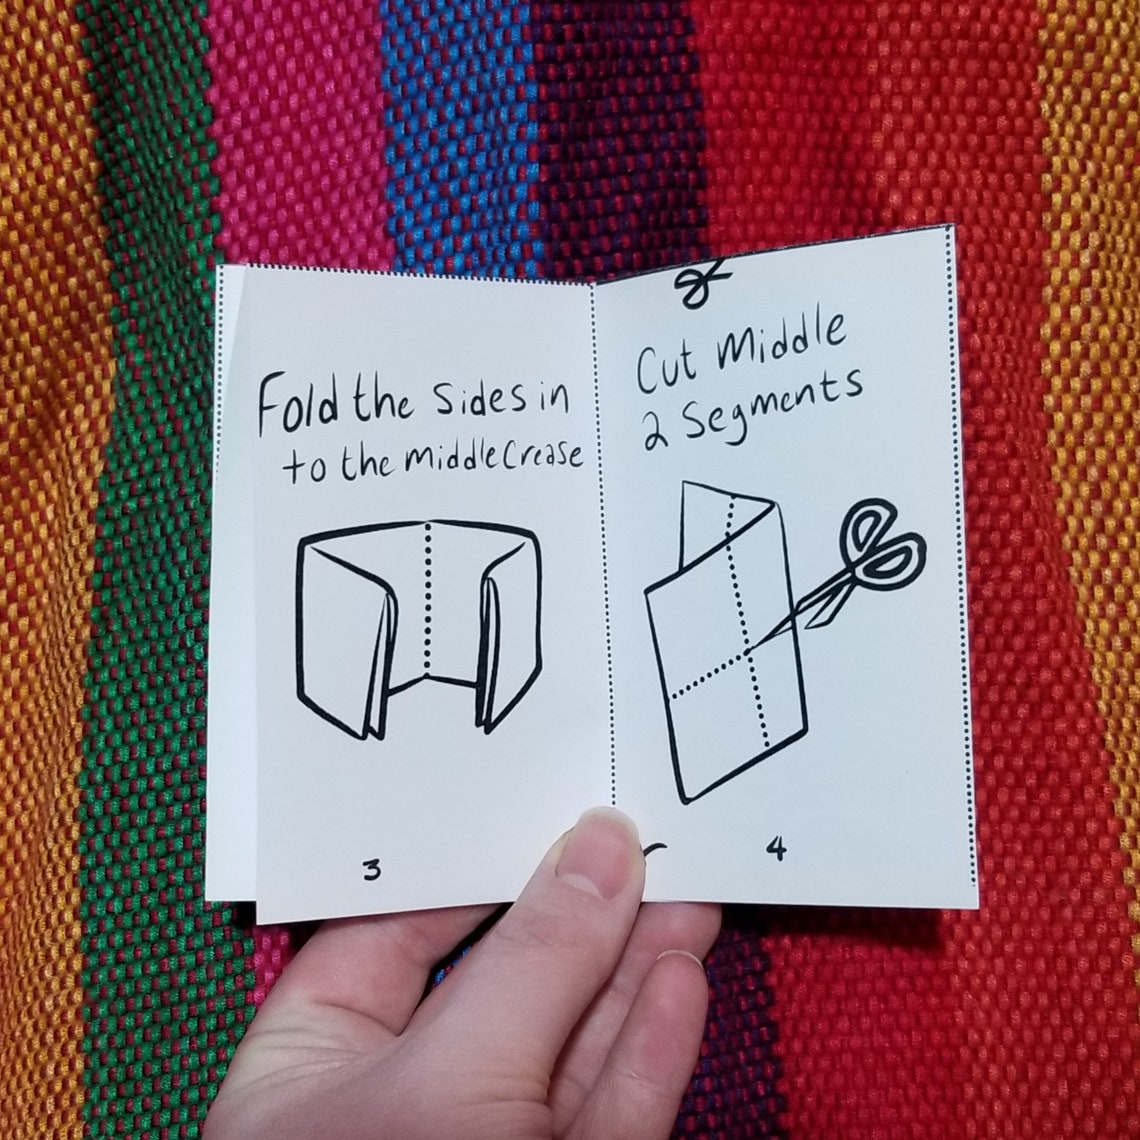 Fold the Sides in
to the middle Crease
3
Cut Middle
2 Segments
4